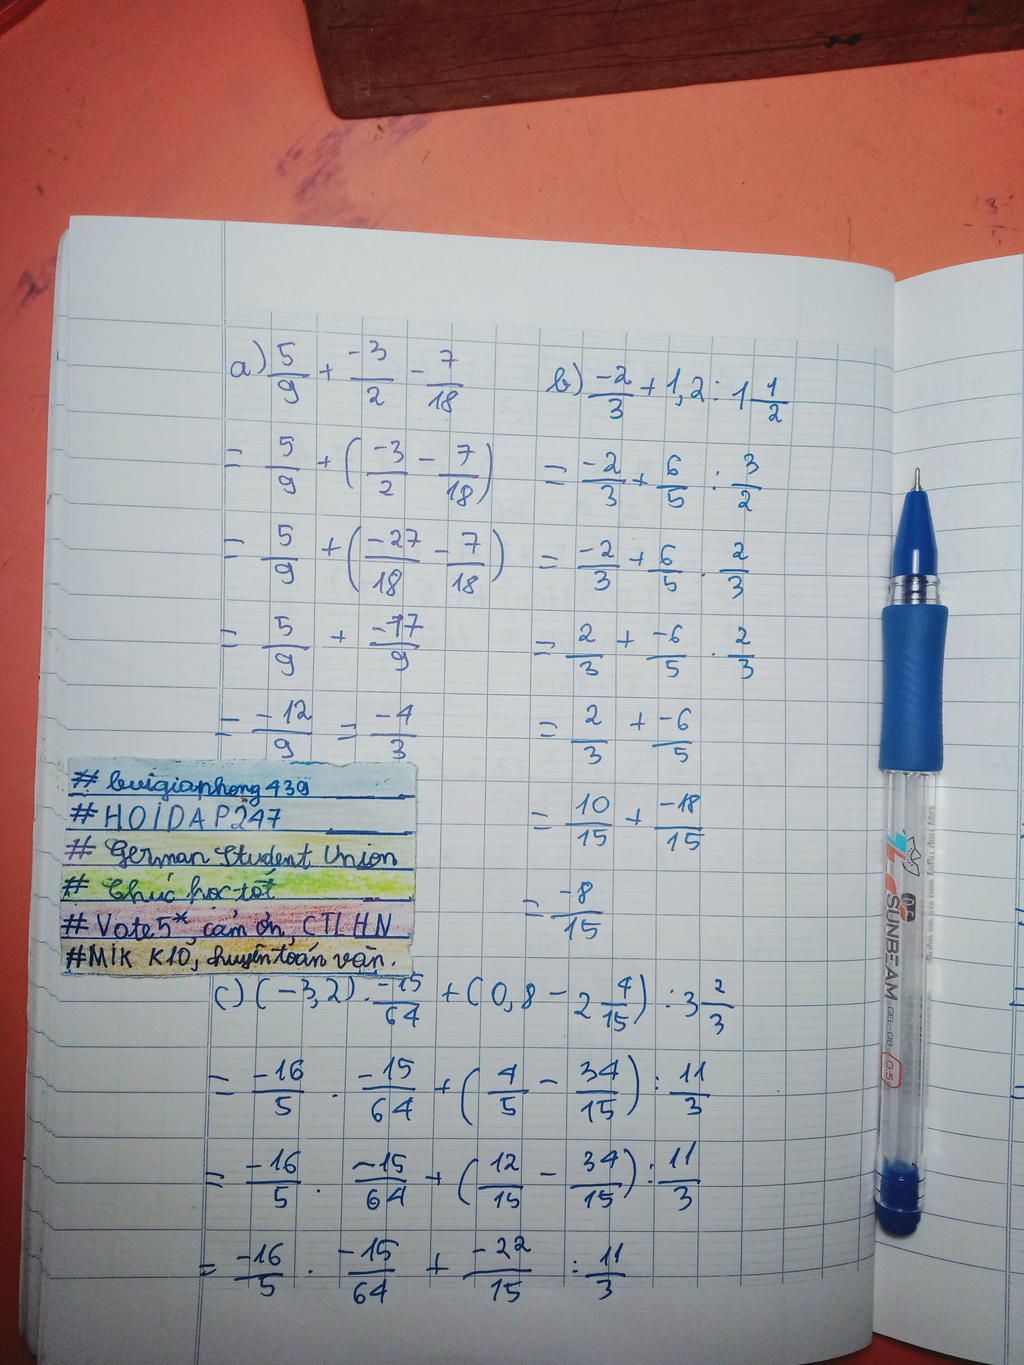 a) 5/9 + -3/2 - 7/18
= 5/9 + (-3/2 - 7/18)
= 5/9 + (-27/18 - 7/18)
= 5/9 + -17/9
= -12/9 = -4/3
b) -2/3 + 1,2 : 1 1/2
= -2/3 + 6/5 : 3/2
= -2/3 + 6/5 . 2/3
= 2/3 + -6/5 . 2/3
= 2/3 + -6/5
= 10/15 + -18/15
= -8/15
# buigiaphong439
# HOIDAP247
# German Student Union
# Chúc học tốt
# Vote 5*, cảm ơn, CTLHN
#MIK K10, chuyên toán văn.
c) (-3,2) . -15/64 + (0,8 - 2 4/15) : 3 2/3
= -16/5 . -15/64 + (4/5 - 34/15) : 11/3
= -16/5 . -15/64 + (12/15 - 34/15) : 11/3
= -16/5 . -15/64 + -22/15 : 11/3
SUNBEAM
GEL-08
0.5